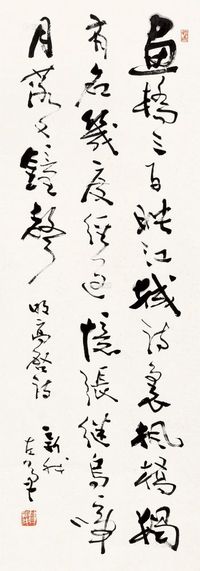 畫橋三百映江城詩裏楓橋獨
有名幾度經過憶張繼烏啼
月落又鐘聲
明高啓詩
新我
左筆